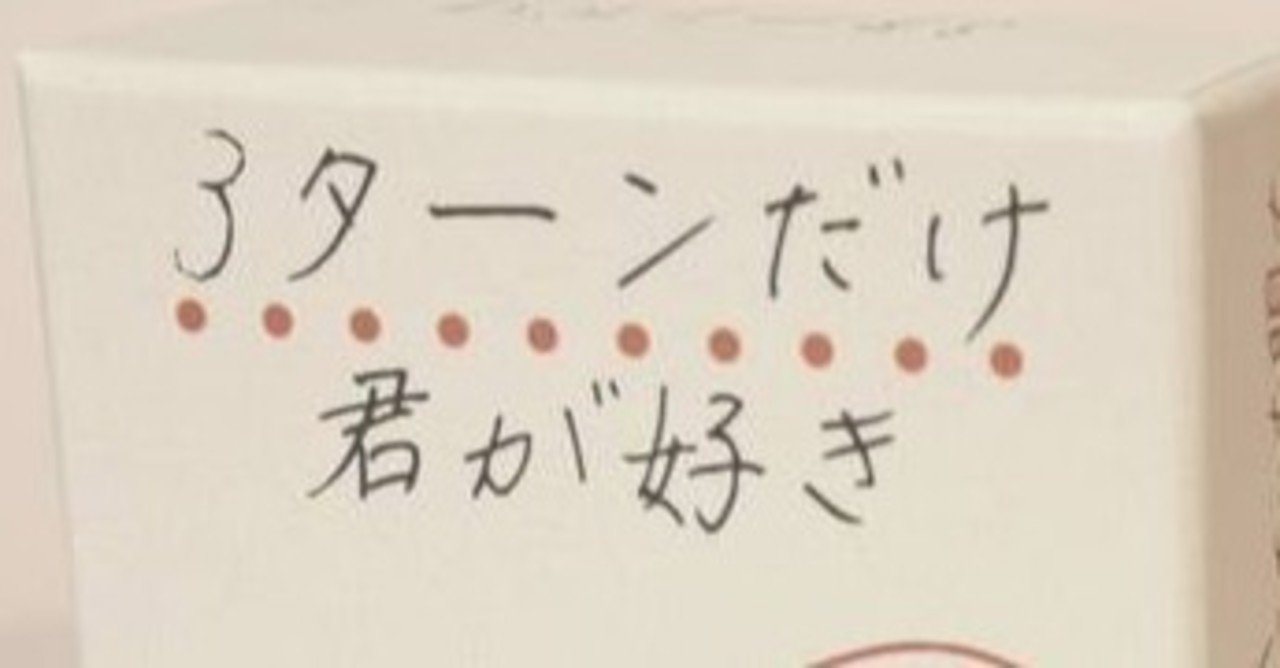 3ターンだけ
君が好き